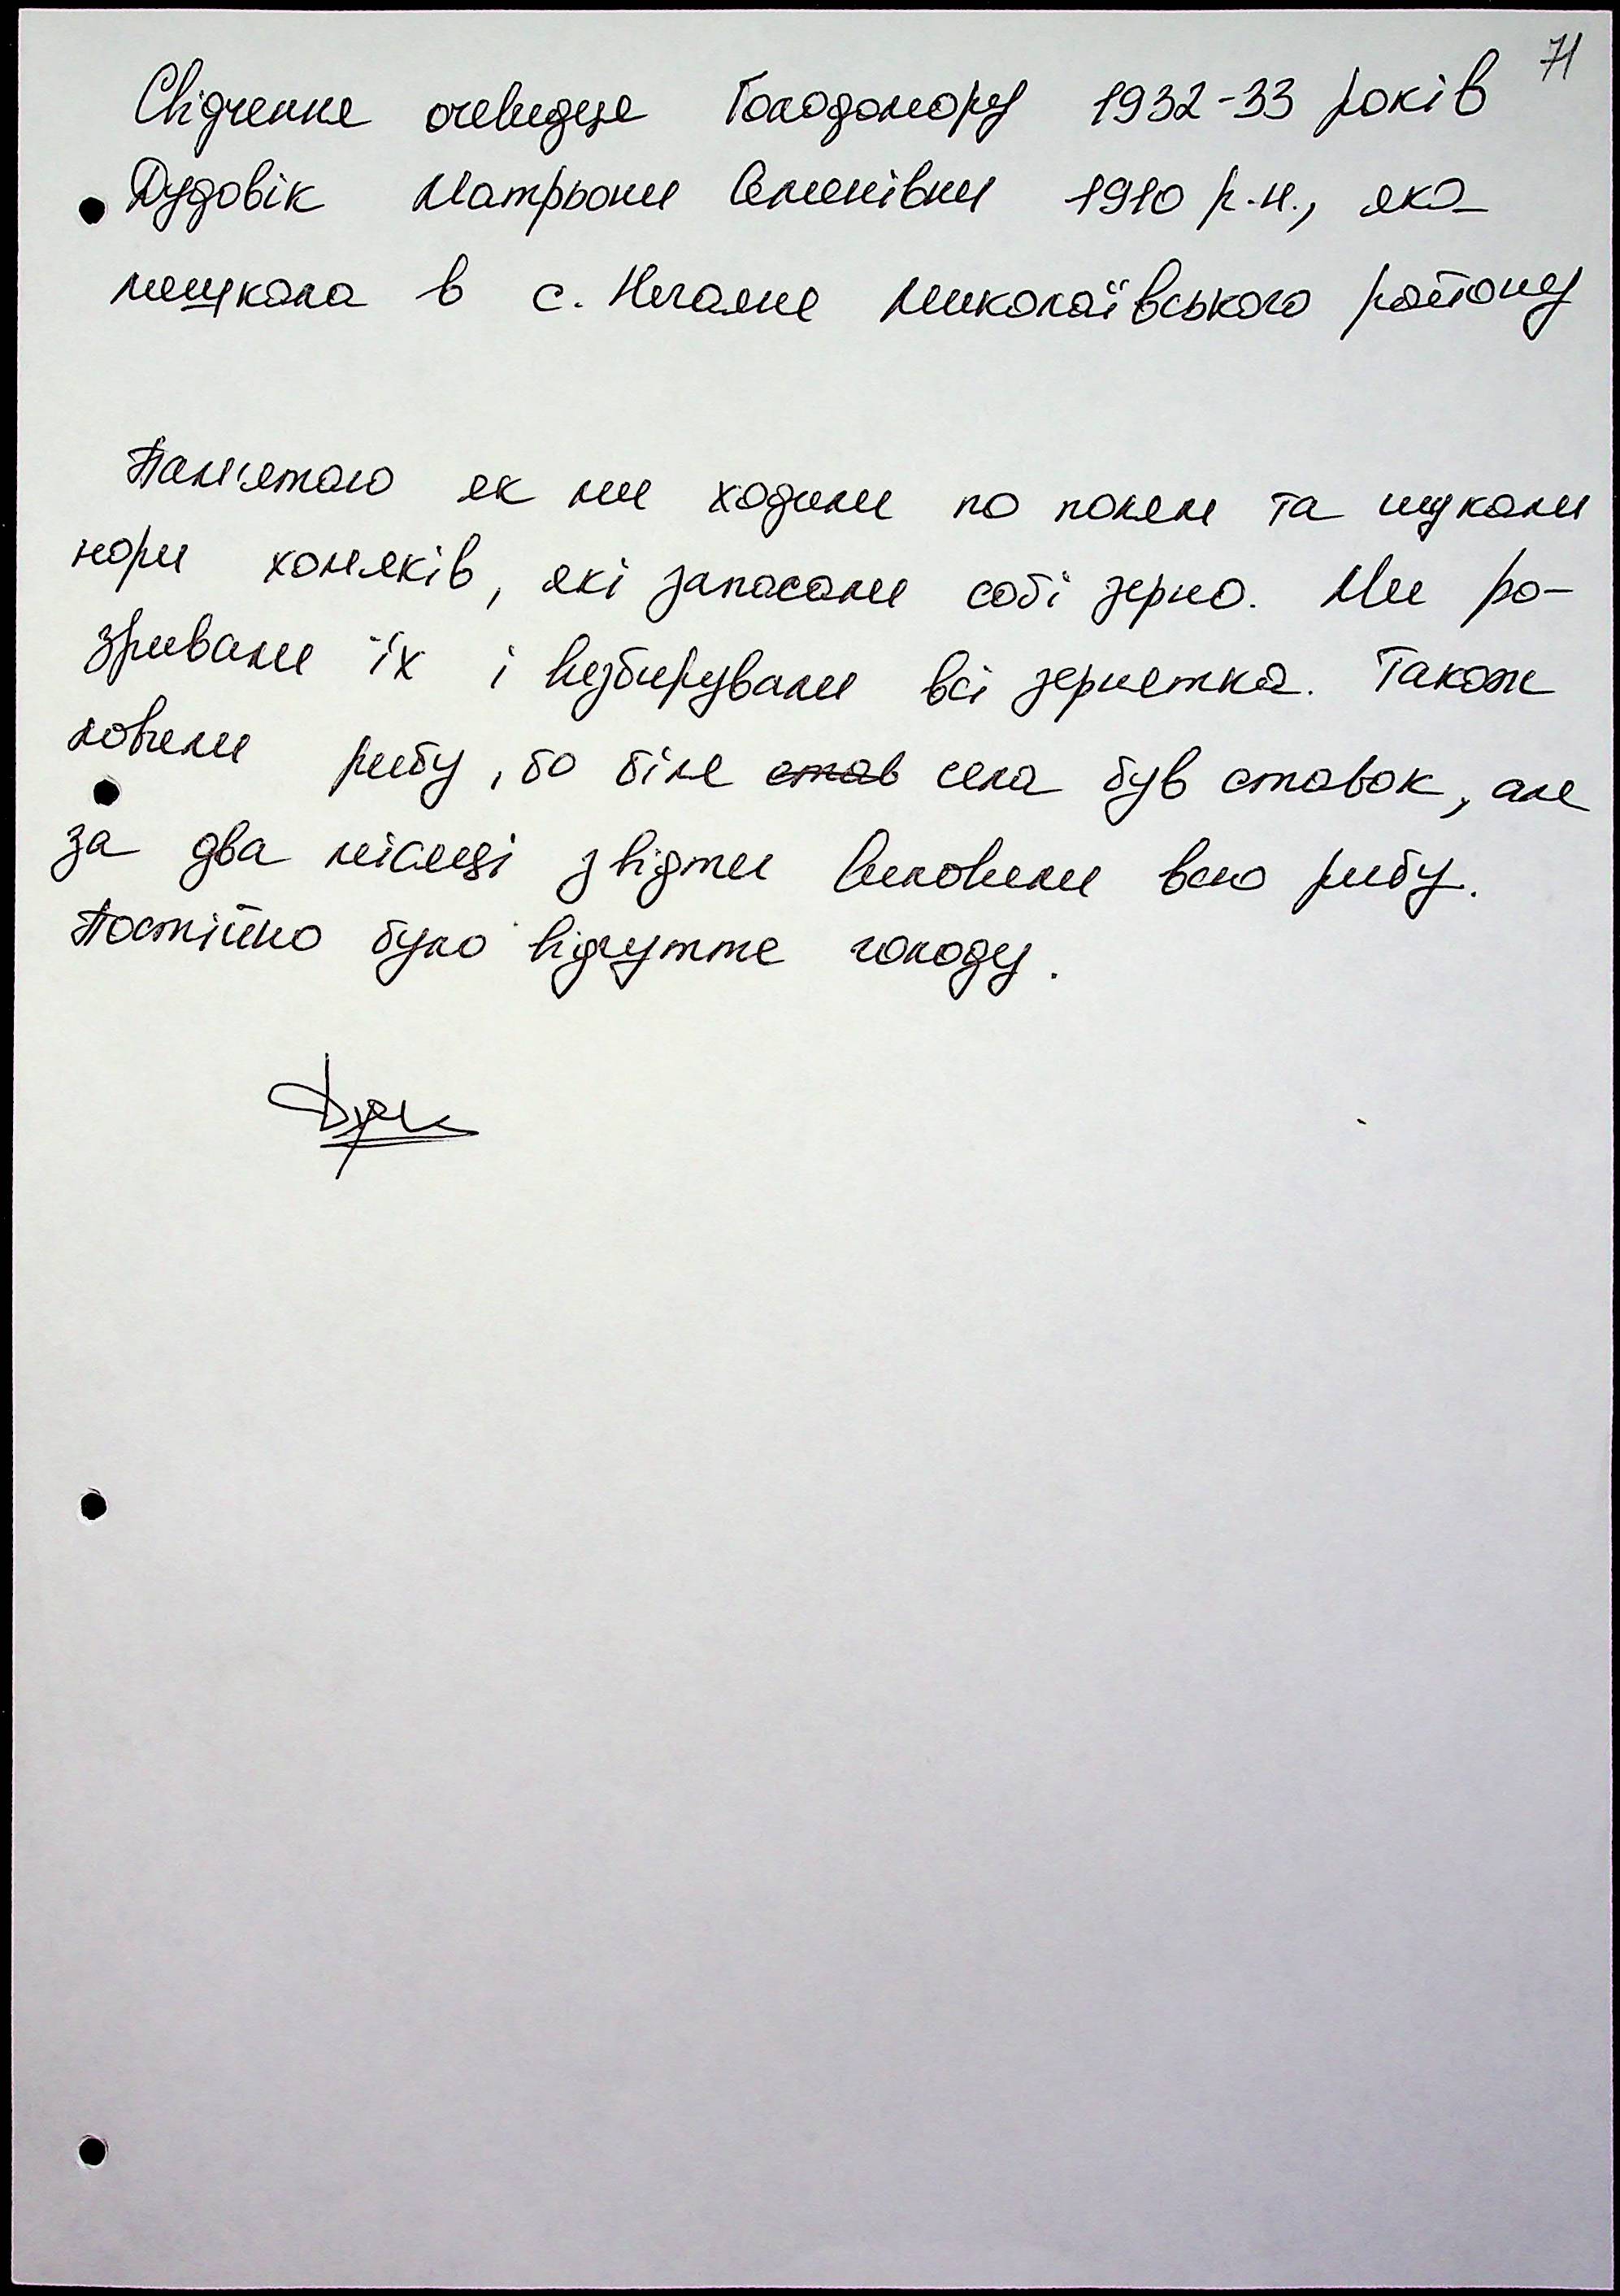 71
Свідчення очевидця Голодомору 1932-33 років
Дудовік Матрьони Семенівни 1910 р.н., яка
мешкала в с. Нечаяне Миколаївського району
Пам'ятаю як ми ходили по полям та шукали
нори хом'яків, які запасали собі зерно. Ми ро-
зривали їх і визбирували всі зернятка. Також
ловили рибу, бо біля став села був ставок, але
за два місяці звідти виловили всю рибу.
Постійно було відчуття голоду.